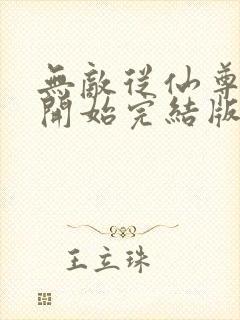 無敵從仙尊
開始完結版
王立珠